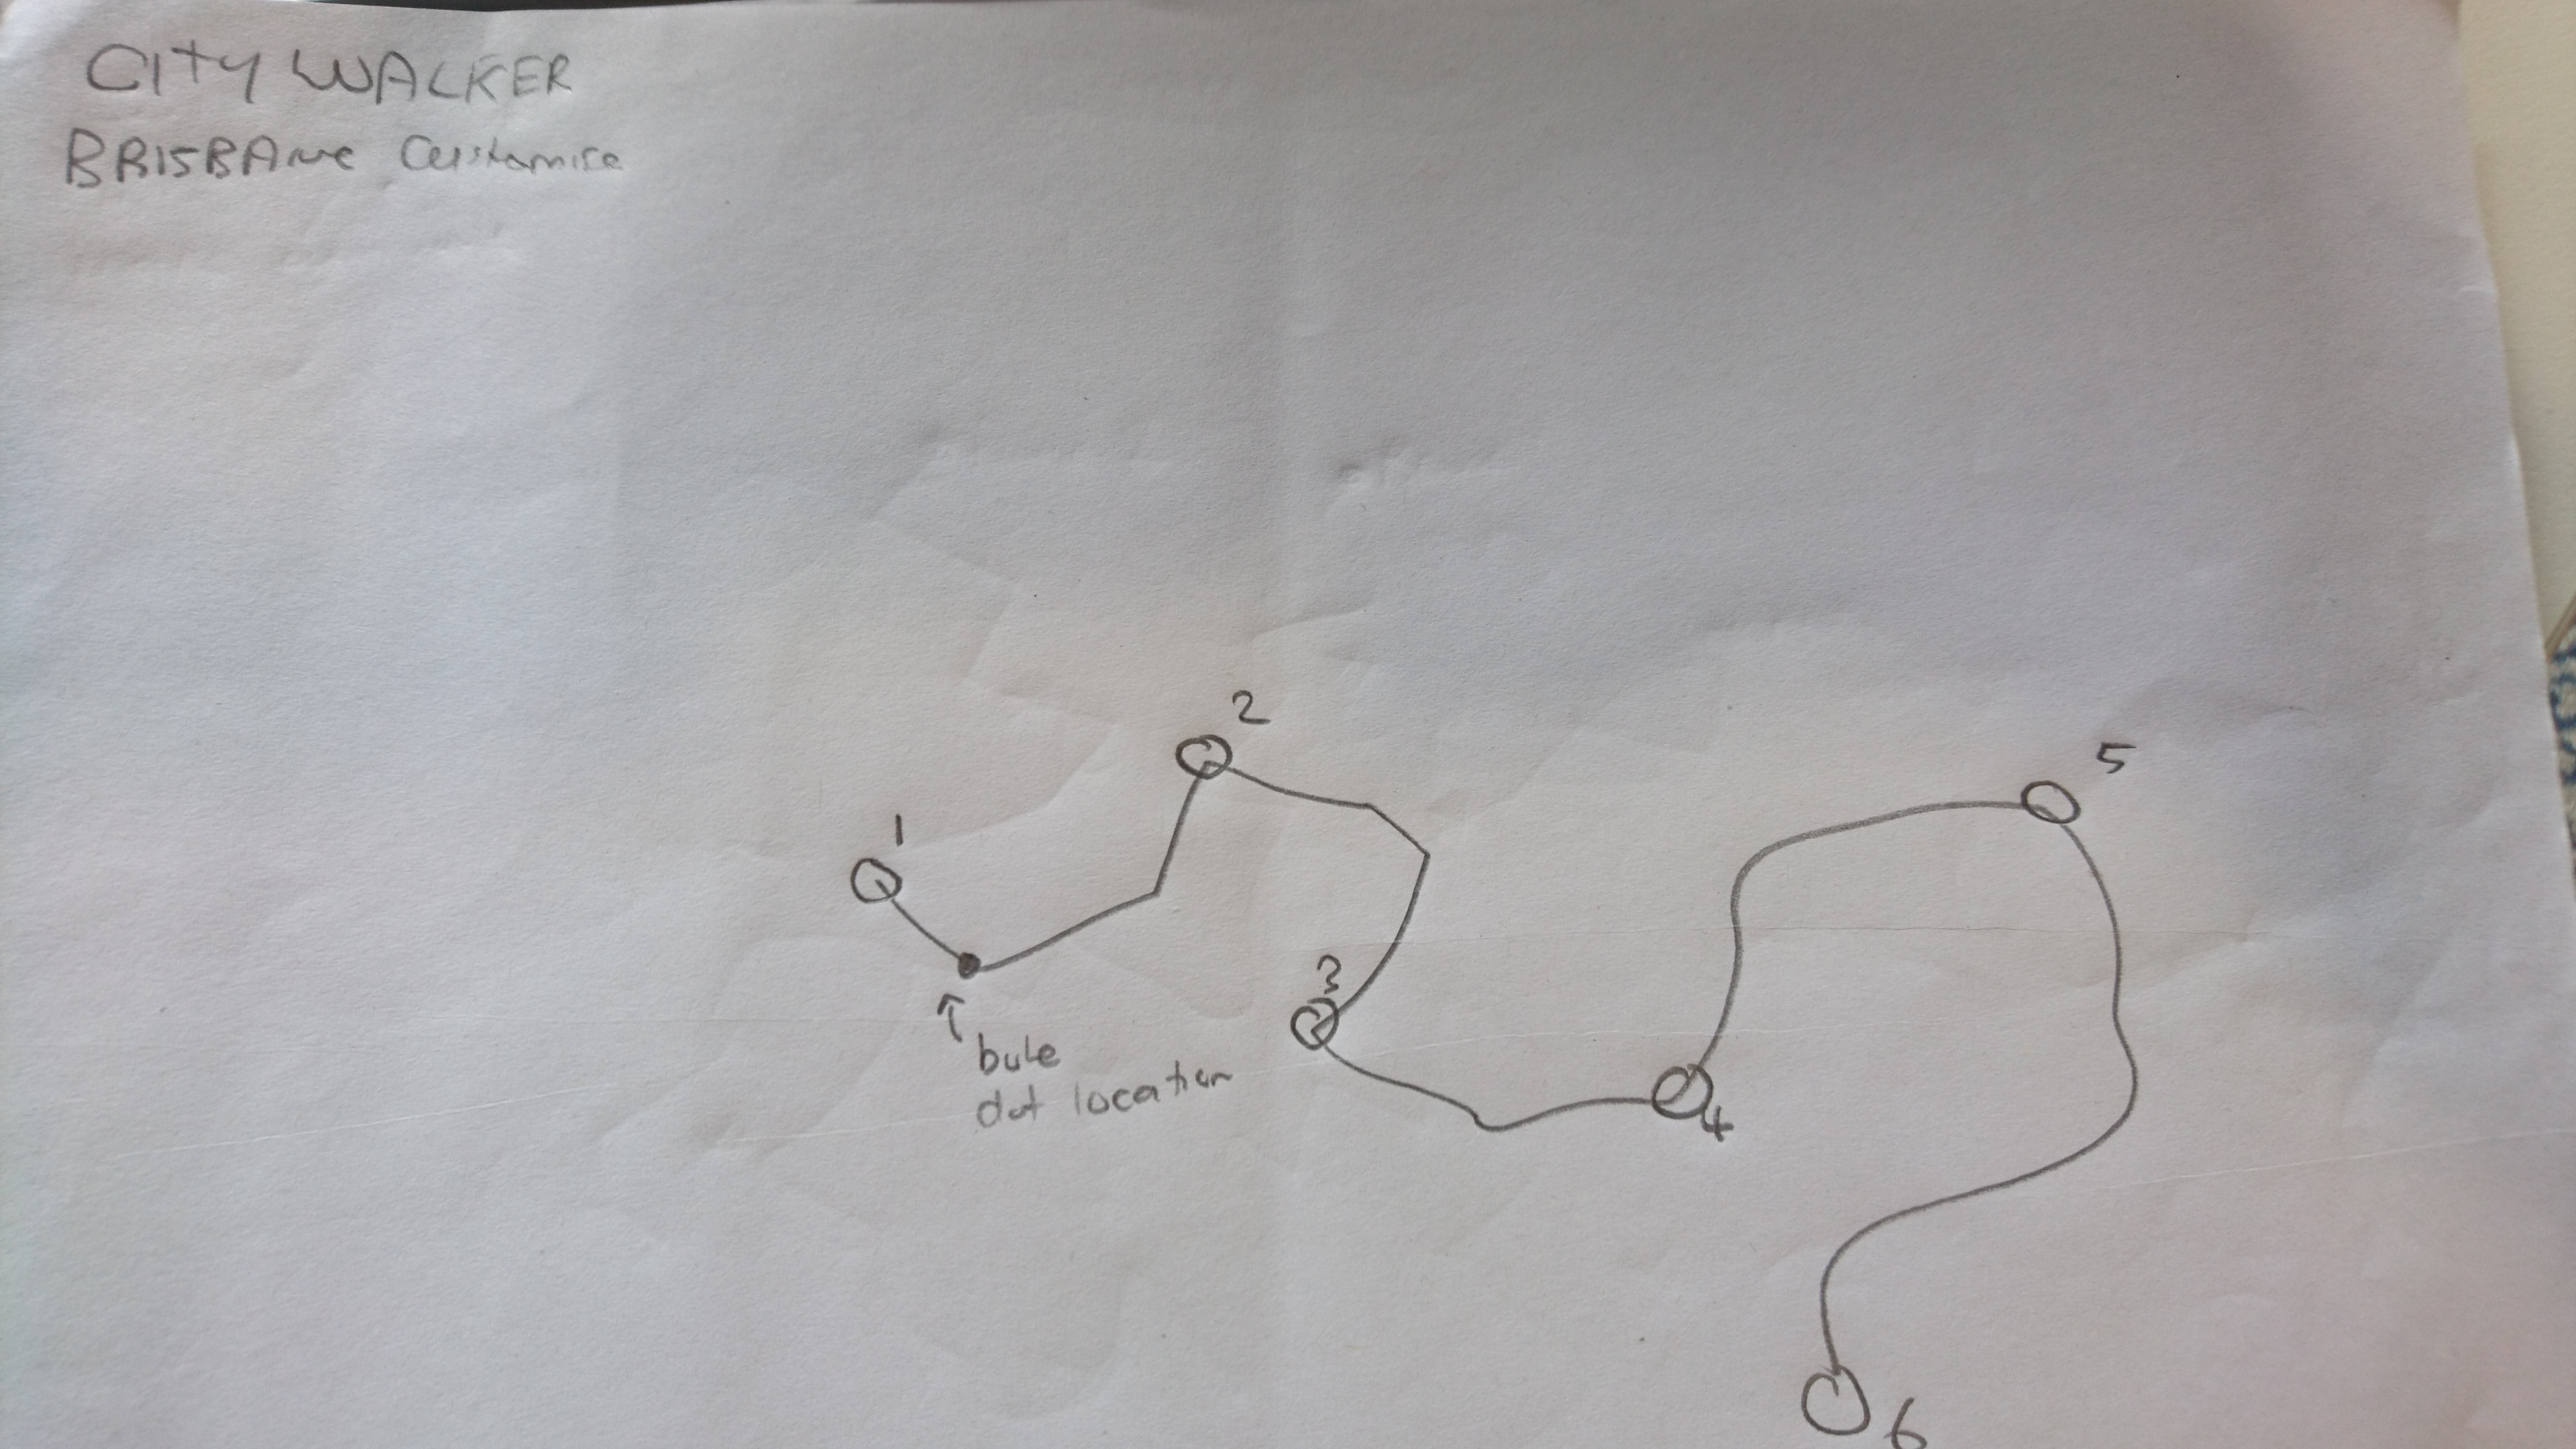 CITY WALKER
BRISBANe Customise
2
5
1
3
bule
dot location
4
6